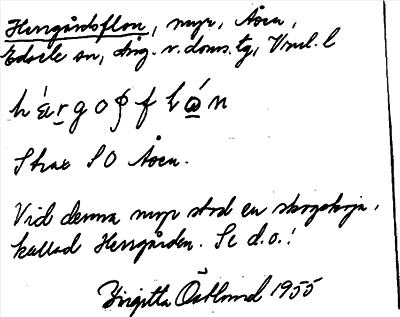 Herrgårdsflon, myr, Åsen,
Edsele sn, Ång. v. doms. tg, Vnrl. l
Strax SO Åsen.
Vid denna myr stod en skogskoja,
kallad Herrgården. Se d.o.!
Birgitta Östlund 1955